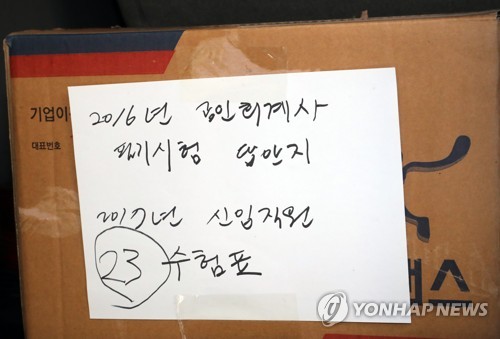 기업이
대표번호
2016년 공인회계사
필기시험 답안지
2017년 신입직원
23 수험표
YONHAP NEWS